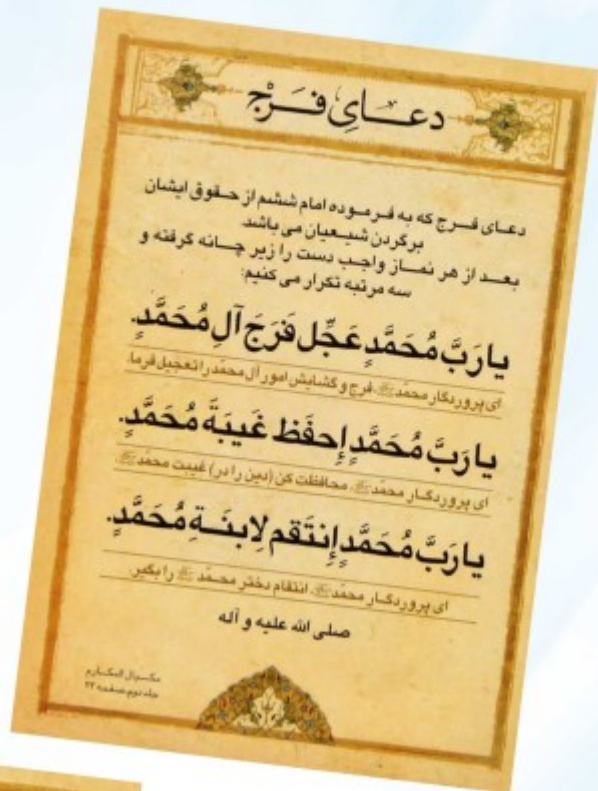 دعــای فَــرَج
دعـای فـــرج که به فـرمـوده امام ششم از حـقوق ایشان
برگردن شیـعیان می باشد.
بعـد از هر نمـاز واجـب دست را زیر چـانه گرفته و
سه مرتبه تکرار می کنیم:
یارَبَّ مُحَمَّدٍ عَجِّل فَرَجَ آلِ مُحَمَّدٍ.
ای پروردگار محمّد ﷺ، فرج و گشایش امور آل محمّد را تعجیل فرما.
یارَبَّ مُحَمَّدٍ إِحفَظ غَیبَةَ مُحَمَّدٍ.
ای پروردگـار محمّد ﷺ، محافظت کن (دین را در) غیبت محمّد ﷺ.
یارَبَّ مُحَمَّدٍ إِنتَقم لِابنَــةِ مُحَمَّدٍ.
ای پروردگـار محمّد ﷺ، انتقام دختر محـمّد ﷺ را بگیر.
صلی الله علیه و آله
مکـیال المکـارم
جلد دوم صفحه ۲۳